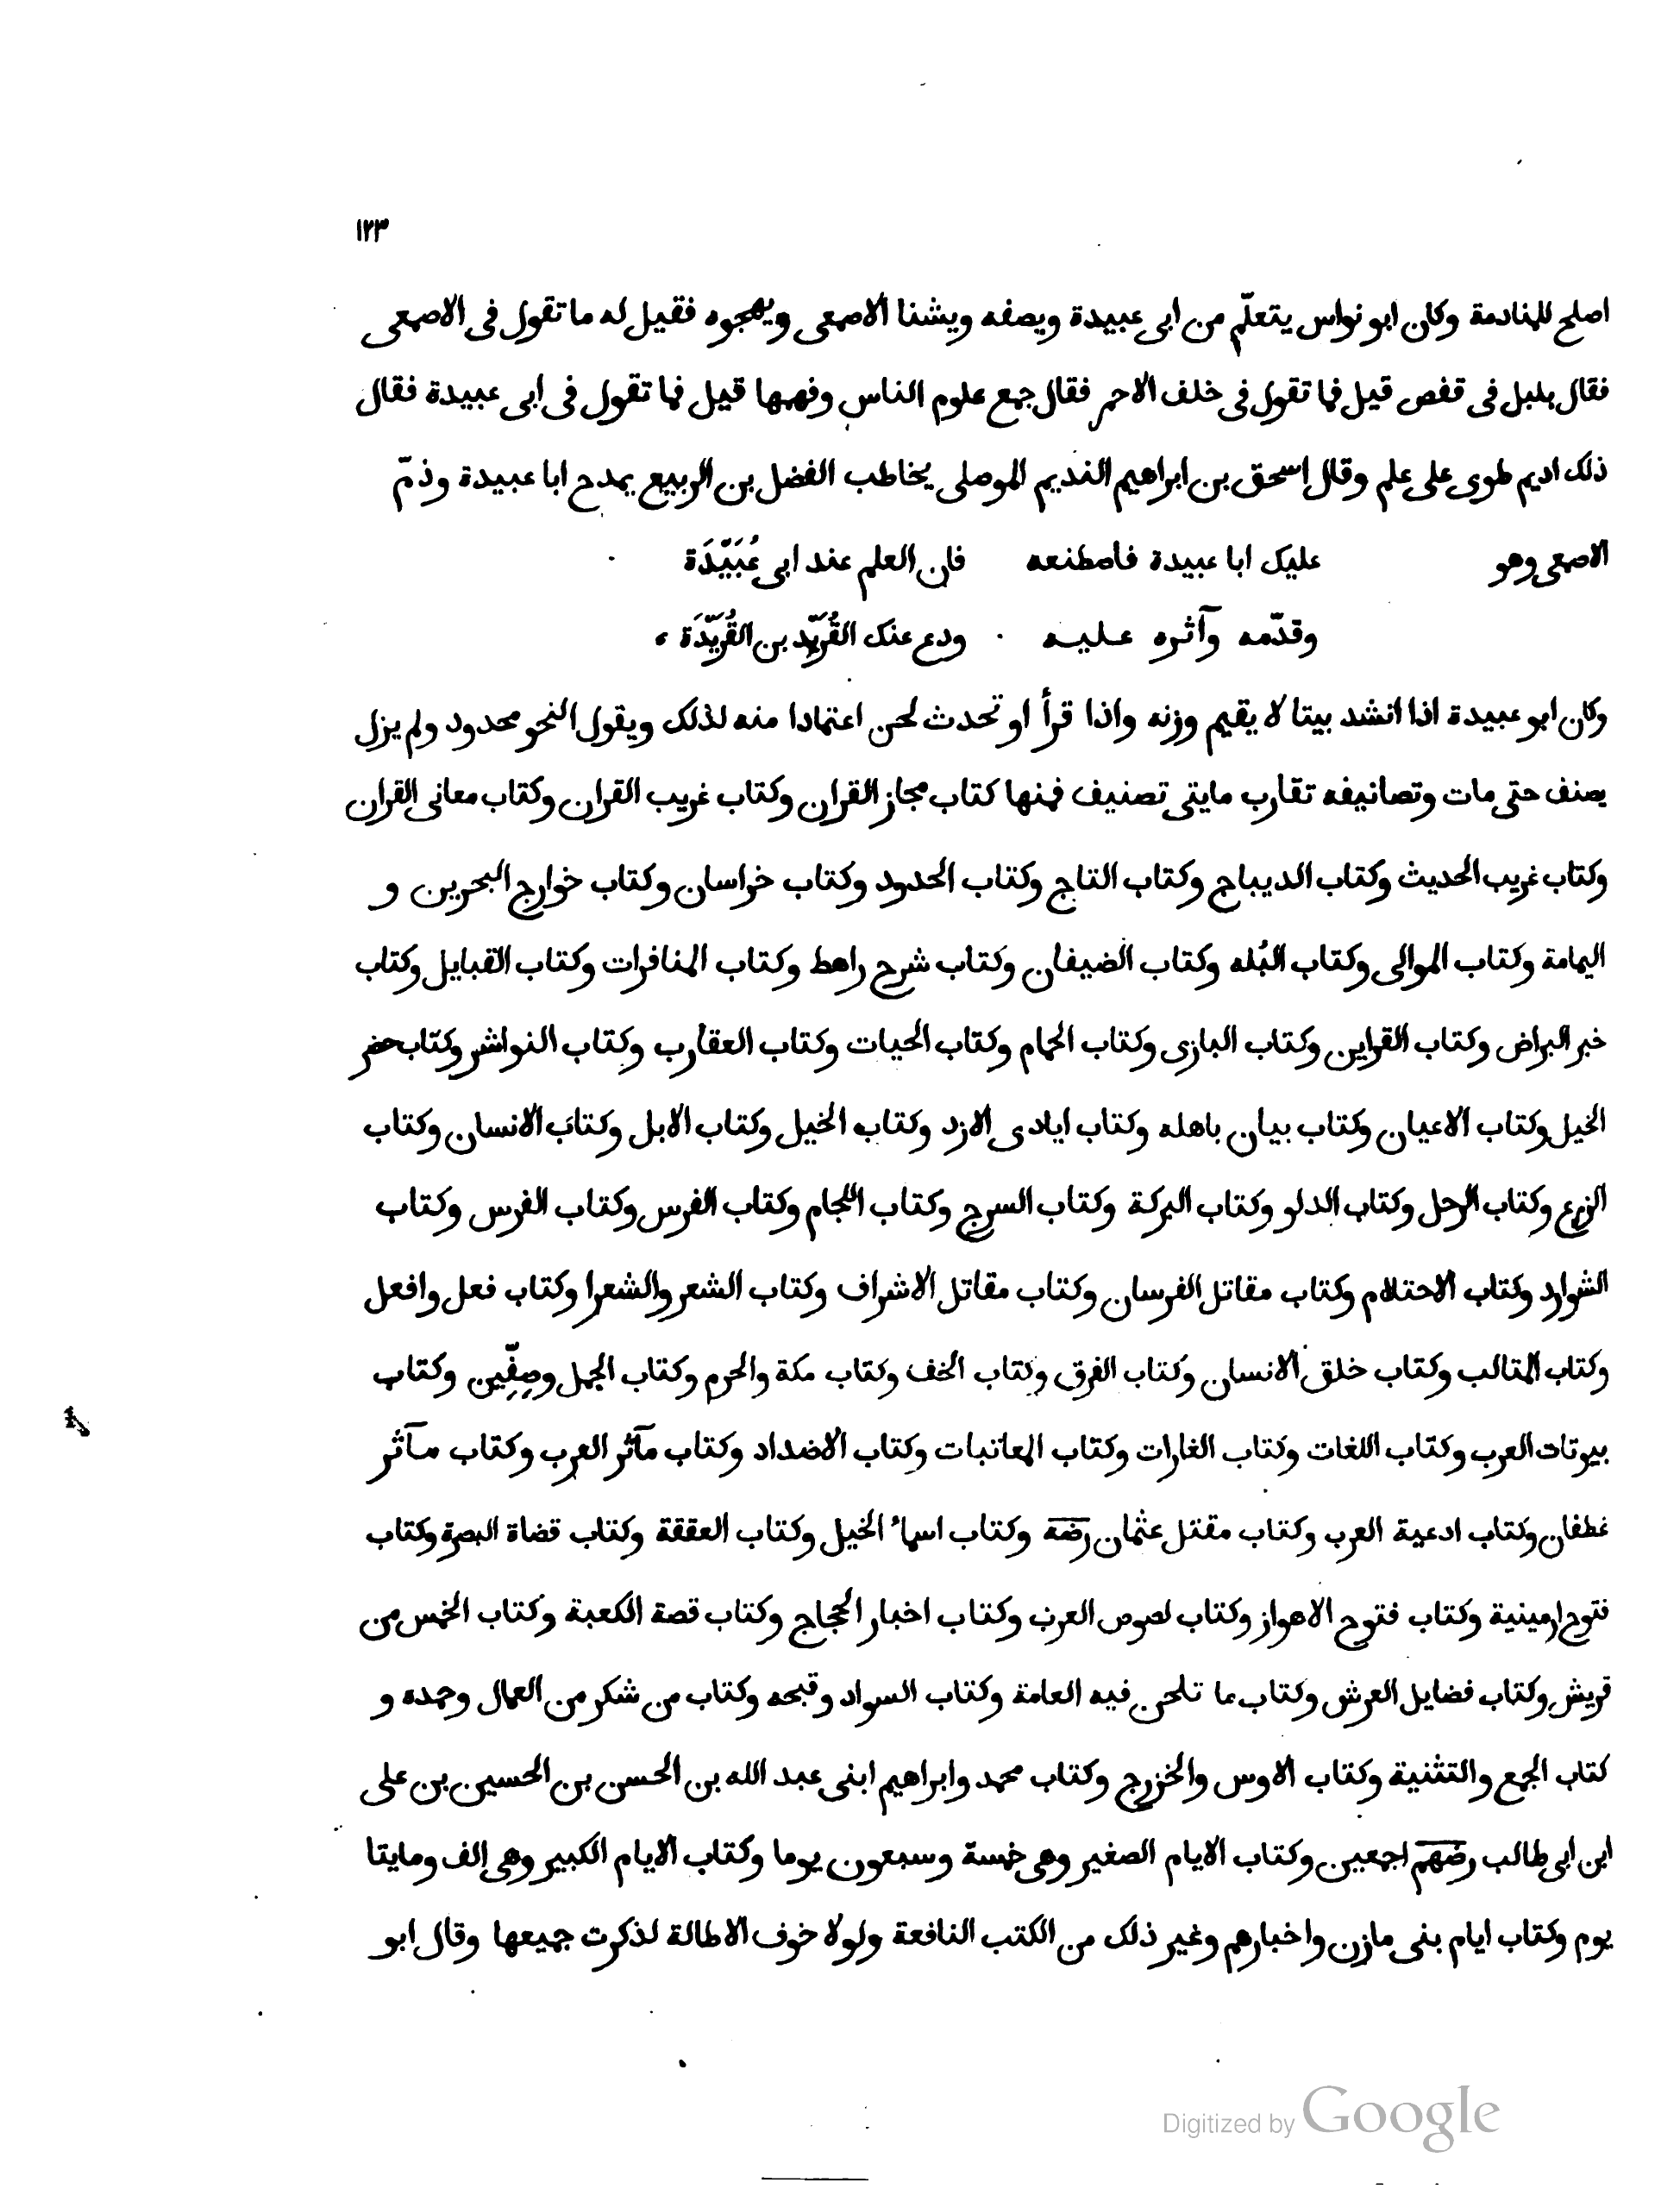 ١٢٣
اصلح للمنادمة وكان ابو نواس يتعلّم من ابى عبيدة ويصفه ويشنا الاصمعى ويهجوه فقيل له ما تقول فى الاصمعى
فقال بلبل فى قفص قيل فما تقول فى خلف الاحمر فقال جمع علوم الناس وفهمها قيل فما تقول فى ابى عبيدة فقال
ذلك اديم طوى على علم وقال اسحق بن ابراهيم النديم الموصلى يخاطب الفضل بن الربيع يمدح ابا عبيدة وذمّ
الاصمعى وهو عليك ابا عبيدة فاصطنعه فان العلم عند ابى عُبَيّدَة
وقدّمه وآثره عليه ودع عنك القُرَيّد بن القُرَيّدَة
وكان ابو عبيدة اذا انشد بيتا لا يقيم وزنه واذا قرأ او تحدث لحن اعتمادا منه لذلك ويقول النحو محدود ولم يزل
يصنف حتى مات وتصانيفه تقارب مايتى تصنيف فمنها كتاب مجاز القران وكتاب غريب القران وكتاب معانى القران
وكتاب غريب الحديث وكتاب الديباج وكتاب التاج وكتاب الحدود وكتاب خراسان وكتاب خوارج البحرين و
اليمامة وكتاب الموالى وكتاب البُله وكتاب الضيفان وكتاب شرح راهط وكتاب المنافرات وكتاب القبايل وكتاب
خبر البراض وكتاب القراين وكتاب البازى وكتاب الحمام وكتاب الحيات وكتاب العقارب وكتاب النواشر وكتاب حضر
الخيل وكتاب الاعيان وكتاب بيان باهله وكتاب ايادى الازد وكتاب الخيل وكتاب الابل وكتاب الانسان وكتاب
الزرع وكتاب الرحل وكتاب الدلو وكتاب البركة وكتاب السرج وكتاب اللجام وكتاب الفرس وكتاب الفرس وكتاب
الشوارد وكتاب الاحتلام وكتاب مقاتل الفرسان وكتاب مقاتل الاشراف وكتاب الشعر والشعرا وكتاب فعل وافعل
وكتاب المثالب وكتاب خلق الانسان وكتاب الفرق وكتاب الخف وكتاب مكة والحرم وكتاب الجمل وصِفّين وكتاب
بيوتات العرب وكتاب اللغات وكتاب الغارات وكتاب المعاتبات وكتاب الاضداد وكتاب مآثر العرب وكتاب مآثر
غطفان وكتاب ادعية العرب وكتاب مقتل عثمان رضه وكتاب اسماء الخيل وكتاب العققة وكتاب قضاة البصرة وكتاب
فتوح ارمينية وكتاب فتوح الاهواز وكتاب لصوص العرب وكتاب اخبار الحجاج وكتاب قصة الكعبة وكتاب الخمس من
قريش وكتاب فضايل العرش وكتاب ما تلحن فيه العامة وكتاب السواد وفتحه وكتاب من شكر من العمال وحمده و
كتاب الجمع والتثنية وكتاب الاوس والخزرج وكتاب محمد وابراهيم ابنى عبد الله بن الحسن بن الحسين بن على
ابن ابى طالب رضهم اجمعين وكتاب الايام الصغير وهى خمسة وسبعون يوما وكتاب الايام الكبير وهى الف ومايتا
يوم وكتاب ايام بنى مازن واخبارهم وغير ذلك من الكتب النافعة ولولا خوف الاطالة لذكرت جميعها وقال ابو
Digitized by Google